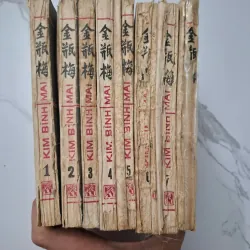 金瓶梅
KIM BÌNH MAI
1
金瓶梅
KIM BÌNH MAI
2
金瓶梅
KIM BÌNH MAI
3
金瓶梅
KIM BÌNH MAI
4
金瓶梅
KIM BÌNH MAI
5
KIM BÌNH
6
金瓶梅
KIM BÌNH MAI
7
金瓶